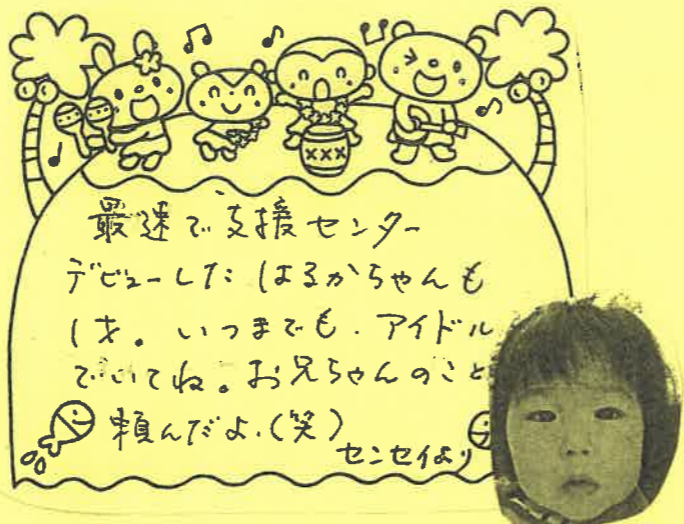 最速で支援センター
デビューしたはるかちゃんも
1才。いつまでも、アイドル
でいてね。お兄ちゃんのこと
頼んだよ。(笑)
センセイより